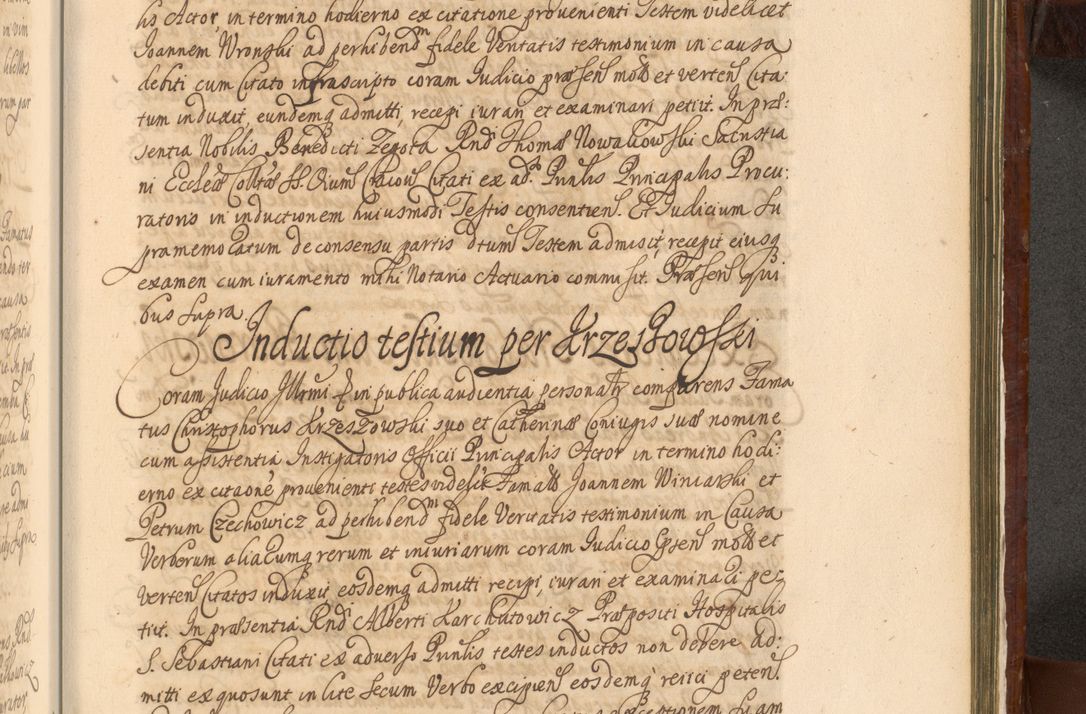 lis Actor, in termino hodierno ex citatione provenienti Testem videlicet
Joannem Wronski ad perhibend̃m fidele Veritatis testimonium in causa
debiti cum Citato infrascripto coram Judicio præsen̄ mot̄ et verten̄ Cita-
tum induxit, eundemq̃ admitti, recepi iurari et examinari petit. In præ:
sentia Nobilis Benedicti Zegota Rnd̄i Thomæ Nowakowski Sacristia
ni Eccleæ Collt̄æ SS. Oium̄ Cracov̄ Citati ex ad. Prin̄lis Principalis Procu:
ratoris in inductionem huiusmodi Testis consentien̄. Et Judicium Su
pramemoratum de consensu partis dtum̄ Testem admisit, recepit eiusq̃
examen cum iuramento mihi Notario Actuario commisit. Præsen̄ Qui
bus Supra.
Inductio testium per Krzeszowski
Coram Judicio Illr̄mi in publica audientia personalr̄ comparens Fama
tus Christophorus Krzeszowski suo et Catherinæ Coniugis suæ nomine
cum assistentia Instigatoris Officii Principalis Actor in termino hodi:
erno ex citaōne provenienti testes videlic̄t Famat̄ Joannem Winiarski et
Petrum Czechowicz ad perhibend̃m fidele Veritatis testimonium in Causa
Verborum aliacumq̃ rerum et iniuriarum coram Judicio Præsen̄ mot̄ et
verten̄ Citatos induxit eosdemq̃ admitti recipi, iurari et examinari pe-
tiit. In præsentia Rnd̄i Alberti Karchutowicz Præpositi Hospitalis
S. Sebastiani Citati ex adverso Prin̄lis testes inductos non debere ad:
mitti ex quo sunt in lite secum Verbo excipien̄ eosdemq̃ reiici peten̄.